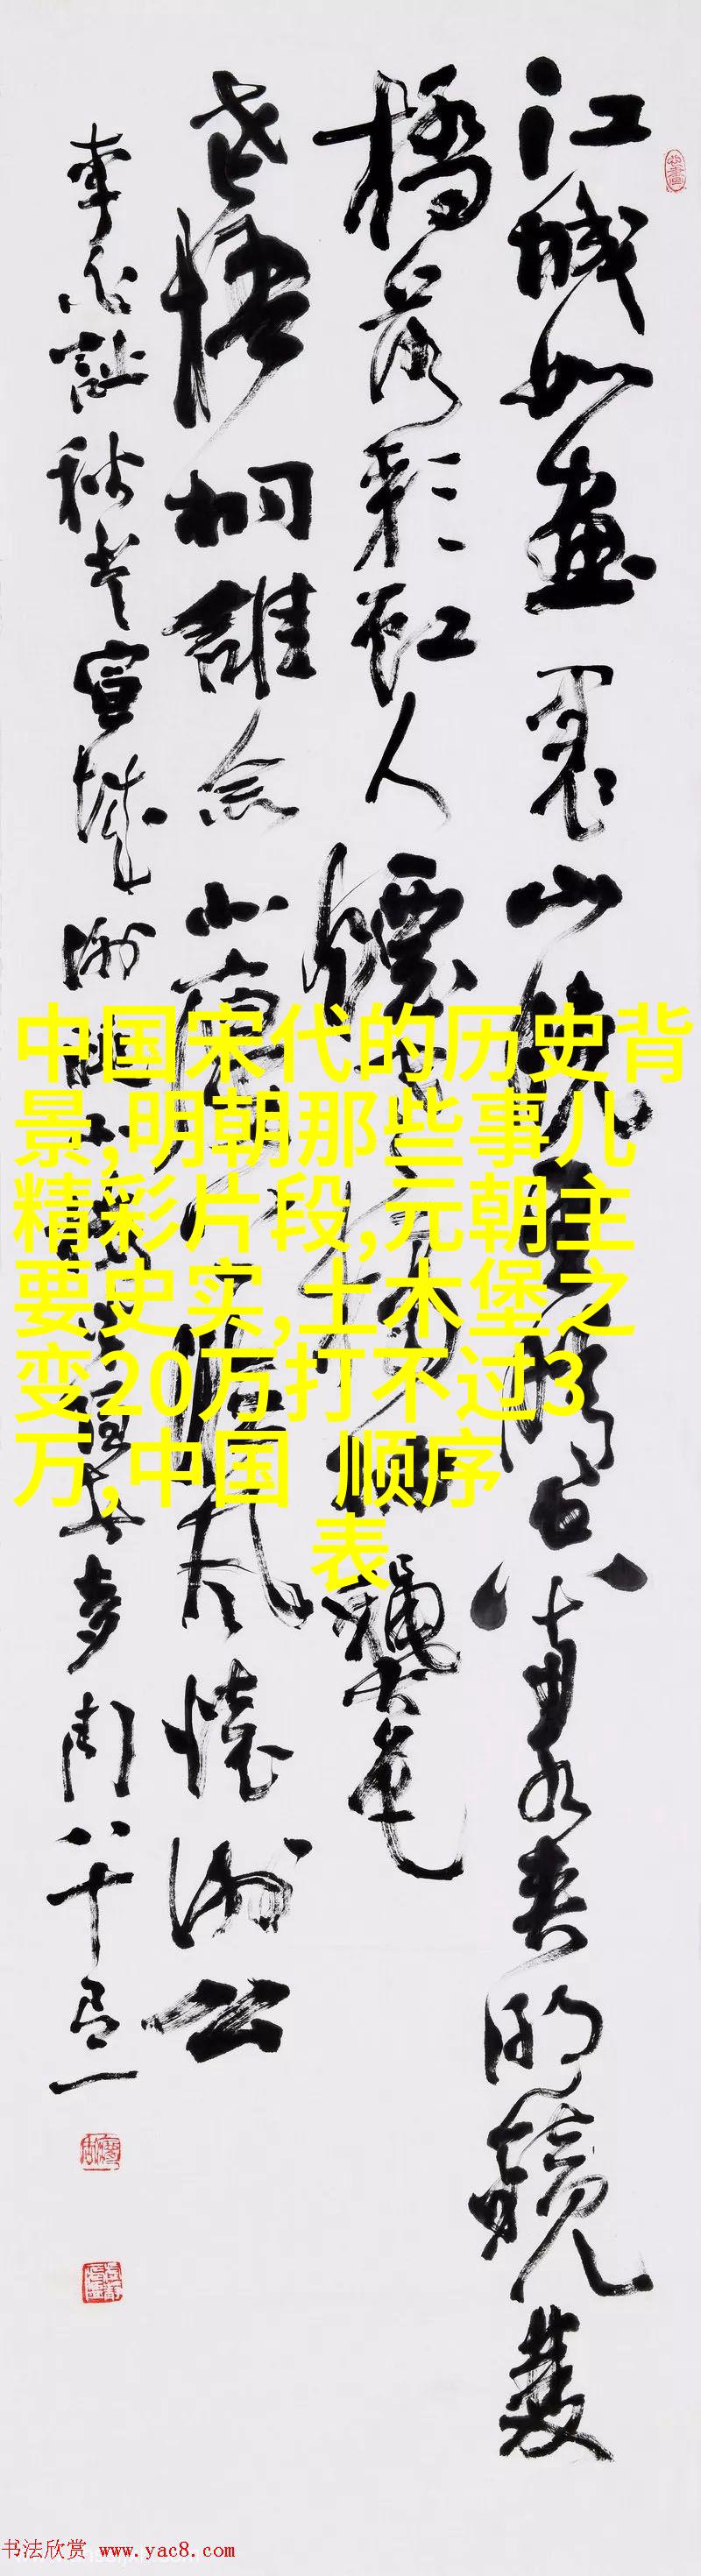 江城如畫裏山曉望晴空兩水夾明鏡雙
橋落彩虹人煙寒橘柚龝色
老梧桐誰念北樓上臨風懷謝公
李白詩秋登宣城謝朓北樓 周八十有一
中国宋代的历史背
景,明朝那些事儿
精彩片段,元朝主
要史实,土木堡之
变20万打不过3
万,中国 顺序
表
书法欣赏 www.yac8.com